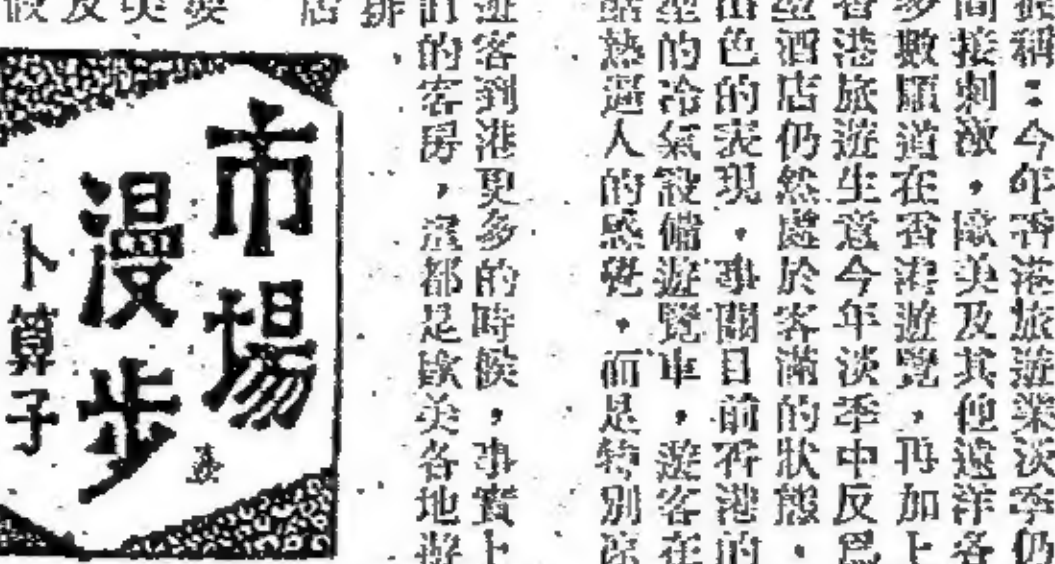 稱：今年香港旅遊業淡季仍
間接刺激，歐美及其他遠洋各
多數順道在香港遊覽，再加上
香港旅遊生意今年淡季中反爲
型酒店仍然處於客滿的狀態，
出色的表現，事關目前香港的
型的冷氣設備遊覽車，遊客在
酷熱逼人的感覺，而是特別涼
遊客到港更多的時候，事實上
訂的客房，這都是歐美各地遊
排
店
市場
漫步
卜算子